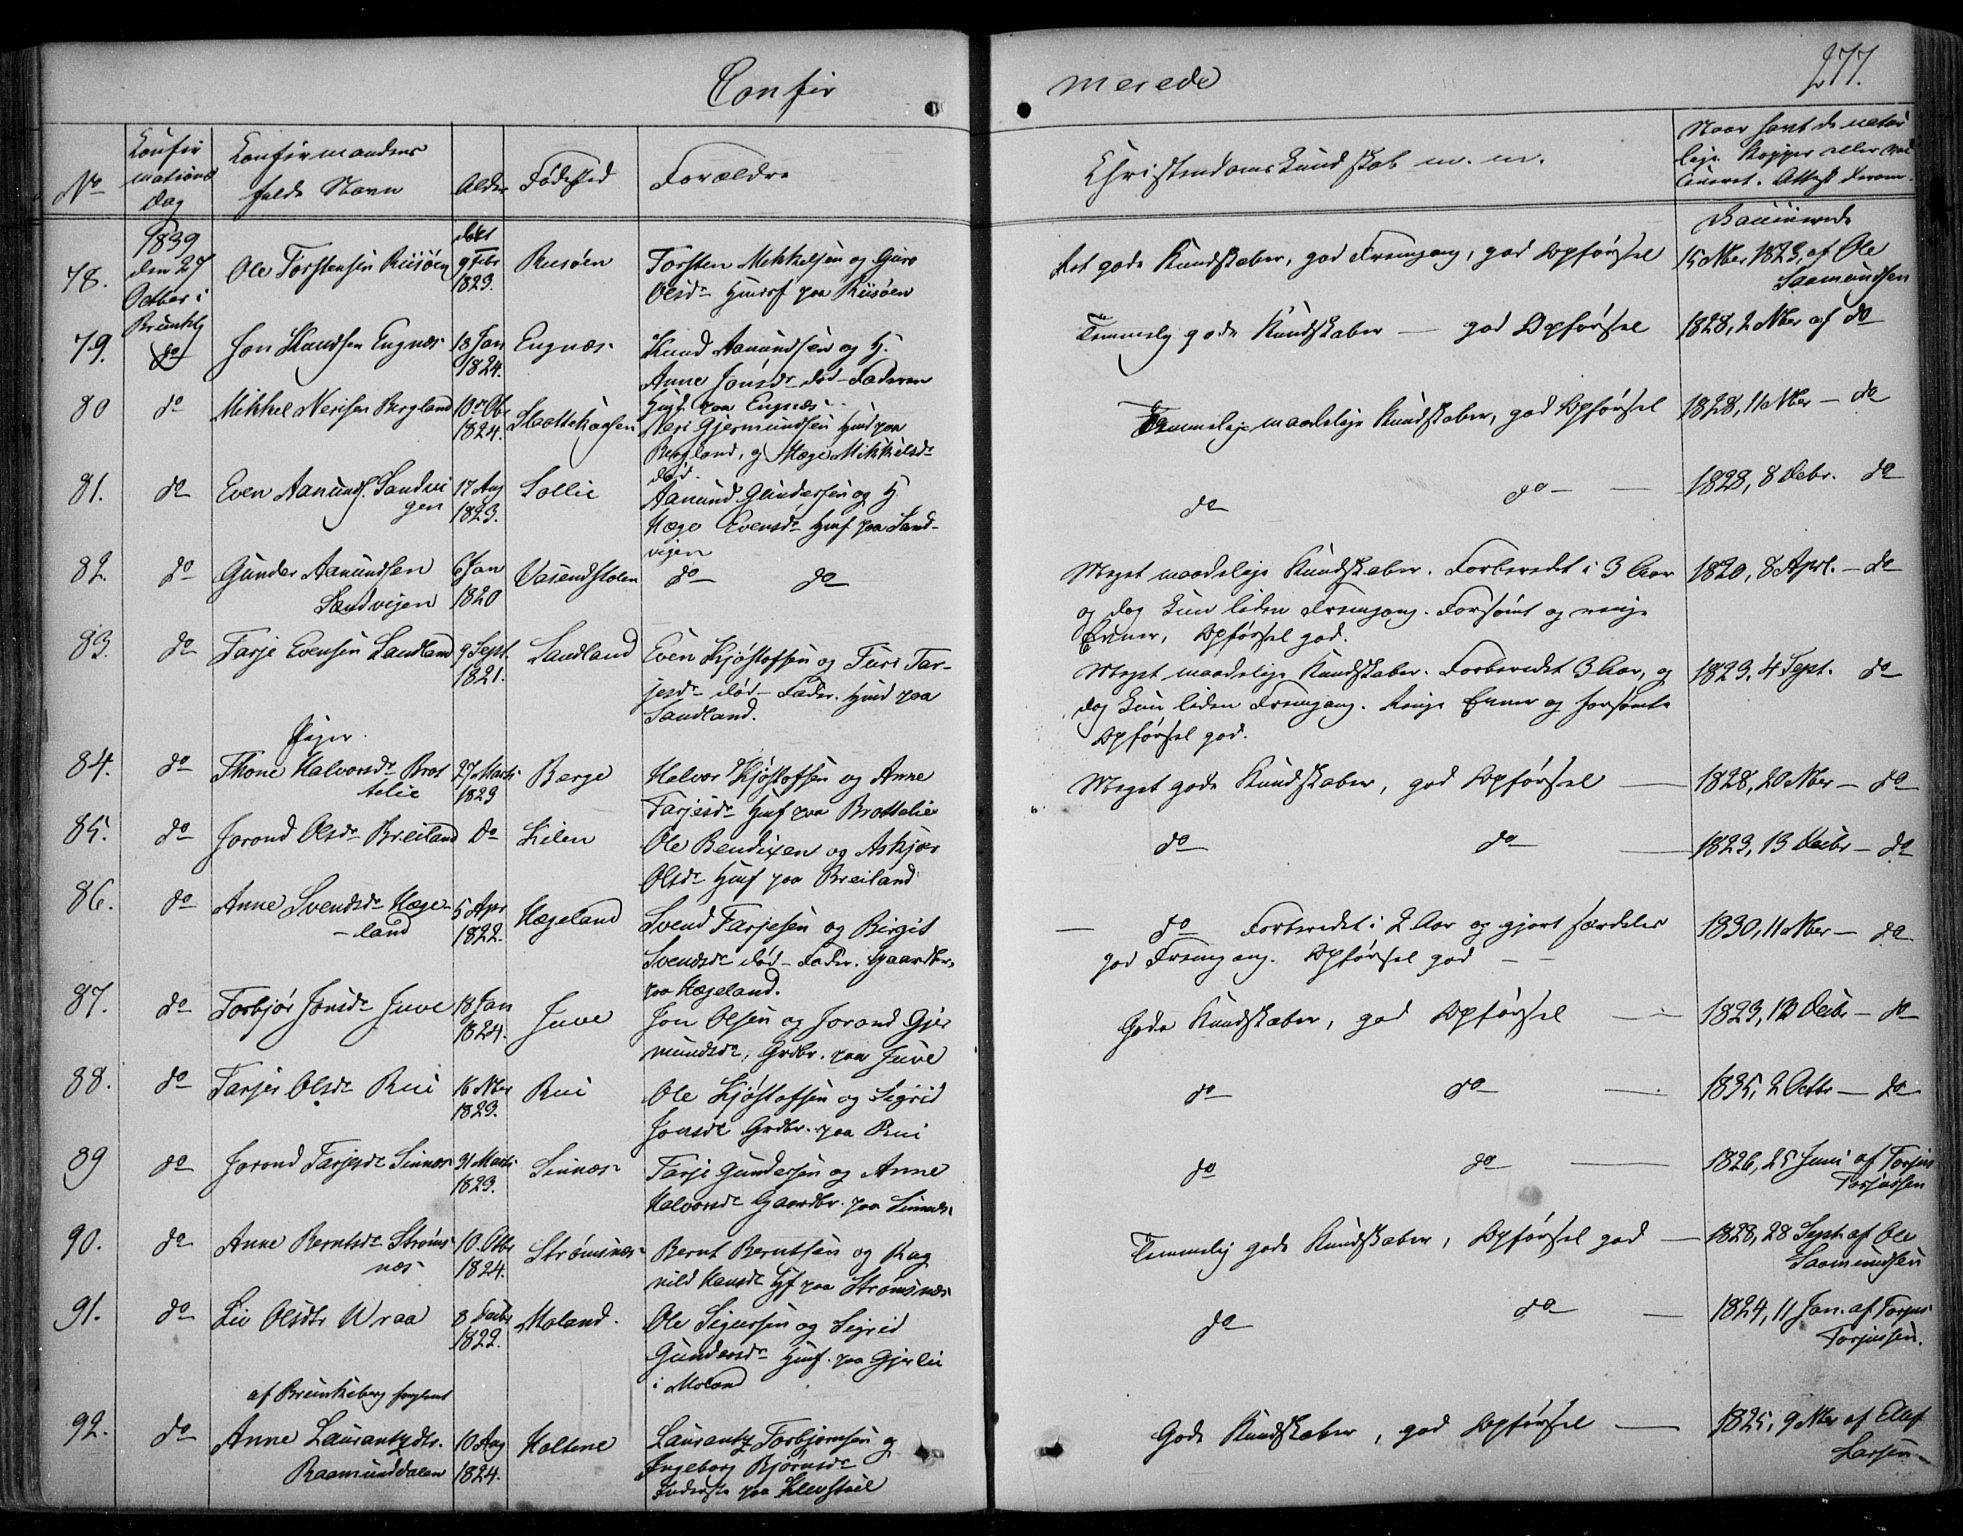 Confirmerede
277.
No
Confirmations Dag
Confirmandens fulde Navn
Alder
Fødested
Forældre
Christendomskundskab m. m.
Naar havt de naturlige Kopper eller Vaccineret. Attest derom.
1839 den 27 October i Brunkeb.
78.
Ole Torstensen Riisøen
døbt 9 Febr 1823.
Rusøen
Torsten Mikkelsen og Guro Olsdr Huusf paa Riisøen
Ret gode Kundskaber, god Fremgang, god Opførsel
Vaccinerede 15 Nber 1823, af Ole Saamundsen
79.
do
Jon Knudsen Engnæs
18 Jan 1824.
Engnæs
Knud Aanundsen og H. Anne Jonsdr død - Faderen Huusf paa Engnæs
Temmelig gode Kundskaber — god Opførsel
1828, 2 Nber af do
80
do
Mikkel Nerisen Bergland
10 Obr 1824.
Slettekaasen
Neri Gjermundsen Huusf paa Bergland, og Hæge Mikkelsdr død.
Temmelige maadelige Kundskaber, god Opførsel
1828, 11 Nber — do
81.
do
Even Aanunds. Sandvigen
17 Aug 1823.
Sollie
Aanund Gundersen og H. Hæge Evensdr Huusf paa Sandvigen
do do —
1828, 8 Debr. do
82.
do
Gunder Aanundsen Sandvigen
6 Jan 1820
Vasendstolen
do do
Meget maadelige Kundskaber. Forberedet i 3 Aar og dog kun liden Fremgang. Forsømt og ringe Evner, Opførsel god.
1820, 8 Aprl. — do
83.
do
Tarje Evensen Sandland
9 Sept. 1821.
Sandland
Even Kjøstolfsen og Turi Tarjesdr død - Fader. Huusf paa Sandland.
Meget maadelige Kundskaber. Forberedet 3 Aar, og dog kun liden Fremgang. Ringe Evner og forsømte Opførsel god.
1823, 4 Sept. do
Piger.
84.
do
Thone Halvorsdr Brottelie
27 Marts 1823
Berge
Halvor Kjøstolfsen og Anne Tarjesdr Huusf paa Brottelie
Meget gode Kundskaber, god Opførsel —
1828, 20 Nber — do
85.
do
Jorond Olsdr Breiland
do
Kilen
Ole Bendixen og Askjær Olsdr Huusf paa Breiland
do do —
1823, 13 Decbr — do
86.
do
Anne Svendsdr Hægeland
5 Apr 1822.
Hægeland
Svend Tarjesen og Birgit Svendsdr død - Fader. Gaardbr. paa Hægeland.
— do Forberedet i 2 Aar og gjort særdeles god Fremgang. Opførsel god —
1830, 11 Nber — do
87.
do
Torbjør Jonsdr Juve
18 Jan 1824.
Juve
Jon Olsen og Jorond Gjermundsdr, Grdbr. paa Juve
Gode Kundskaber, god Opførsel —
1823, 13 Decbr — do
88.
do
Tarjer Olsdr Rui
16 Nber 1823.
Rui
Ole Kjøstolfsen og Sigrid Jonsdr Grdbr. paa Rui
do do —
1835, 2 Octbr — do
89
do
Jorond Tarjesdr Sinnes
31 Marts 1823.
Sinnes
Tarje Gundersen og Anne Halvorsdr Gaardbr. paa Sinnes
do do —
1826, 25 Juni af Torjus Torjussen
90.
do
Anne Berntsdr Strømsnæs
10. Obr 1824.
Strømsnæs
Bernt Berntsen og Ragnild Hansdr Hf paa Strømsnæs
Temmelig gode Kundskaber, Opførsel god —
1828, 28 Sept. af Ole Saamundsen
91.
do
Liv Olsdtr Wraa
8 Decbr 1822.
Moland.
Ole Sigursen og Sigrid Gundersdr Huusf. paa Gjerlie i Moland
do do —
1824, 11 Jan. af Torjus Torjussen.
92.
do
af Brunkeberg Sogn
Anne Laurantzdtr. Raamunddalen
10 Aug 1824.
Holtene
Laurantz Torbjørnsen og Ingeborg Bjørnsdr Inderste paa Klevstuel
Gode Kundskaber, god Opførsel —
1825, 9 Nber af Ellef Larsen